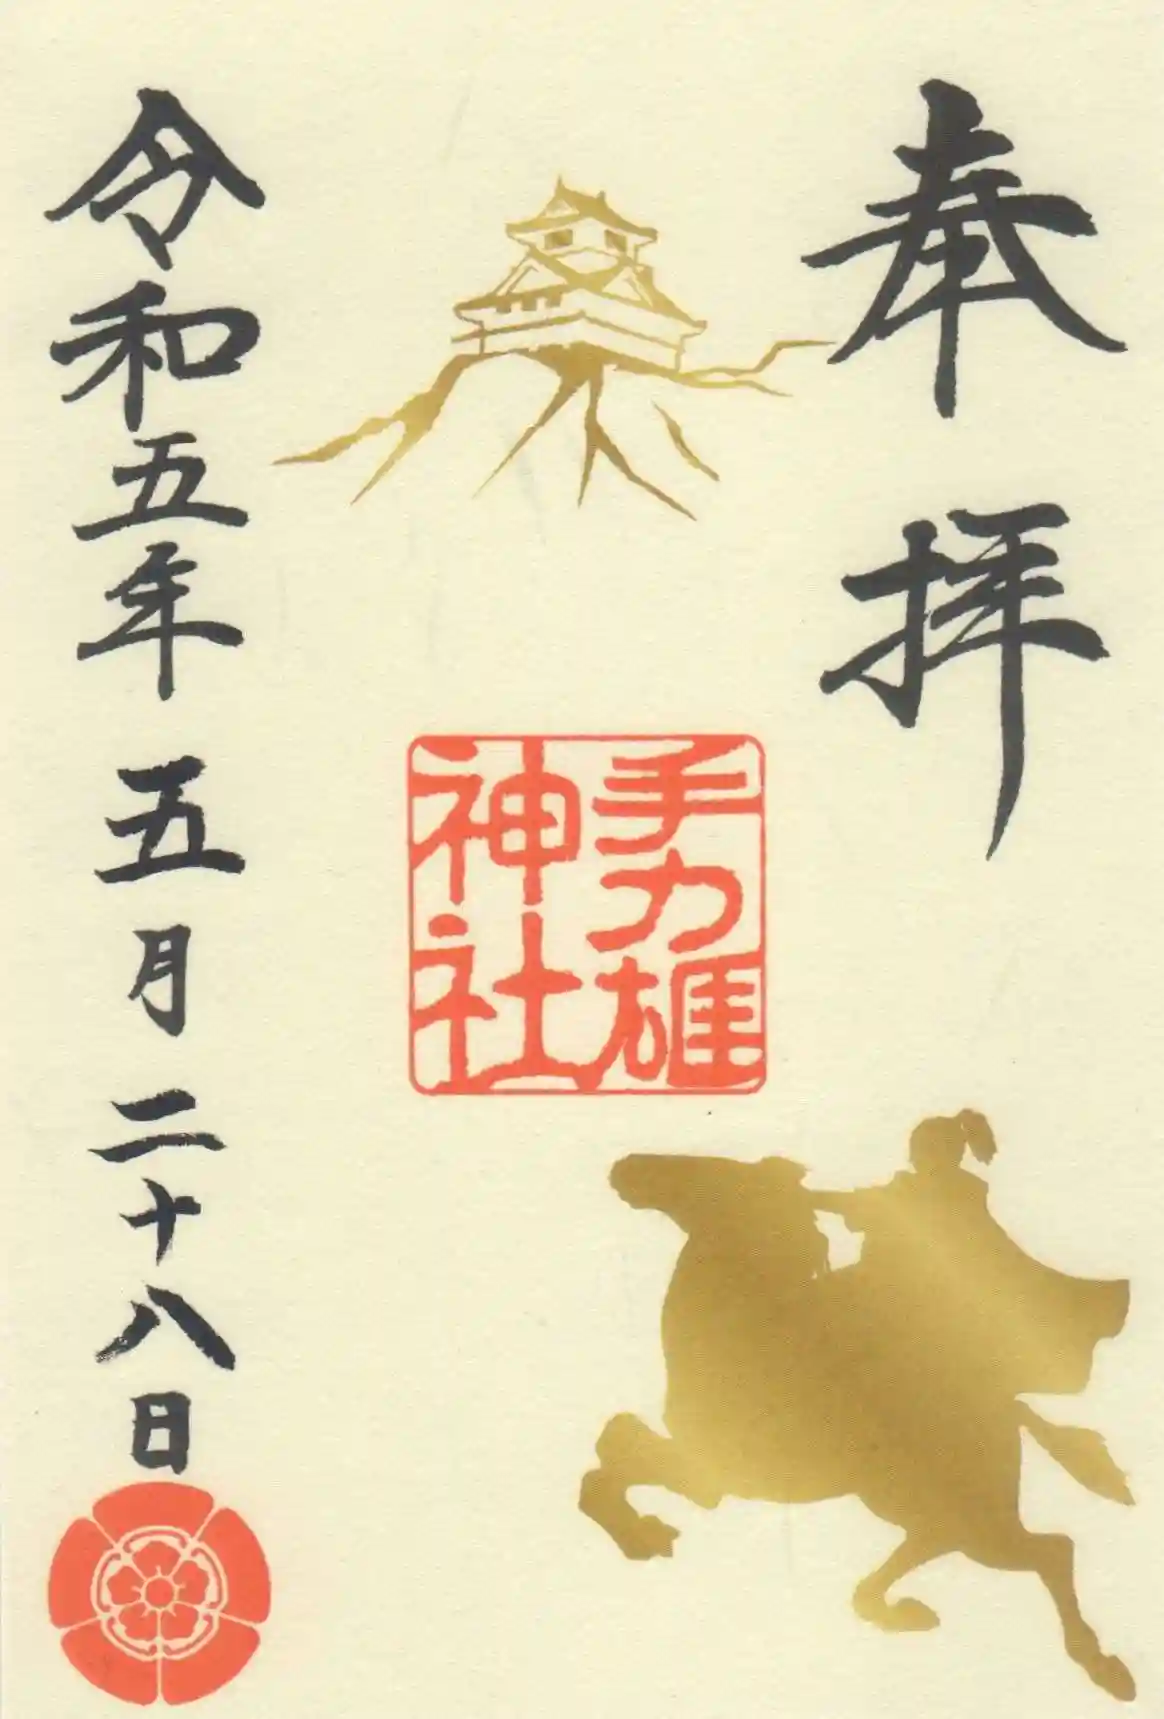 奉拝
手力雄
神社
令和五年五月二十八日